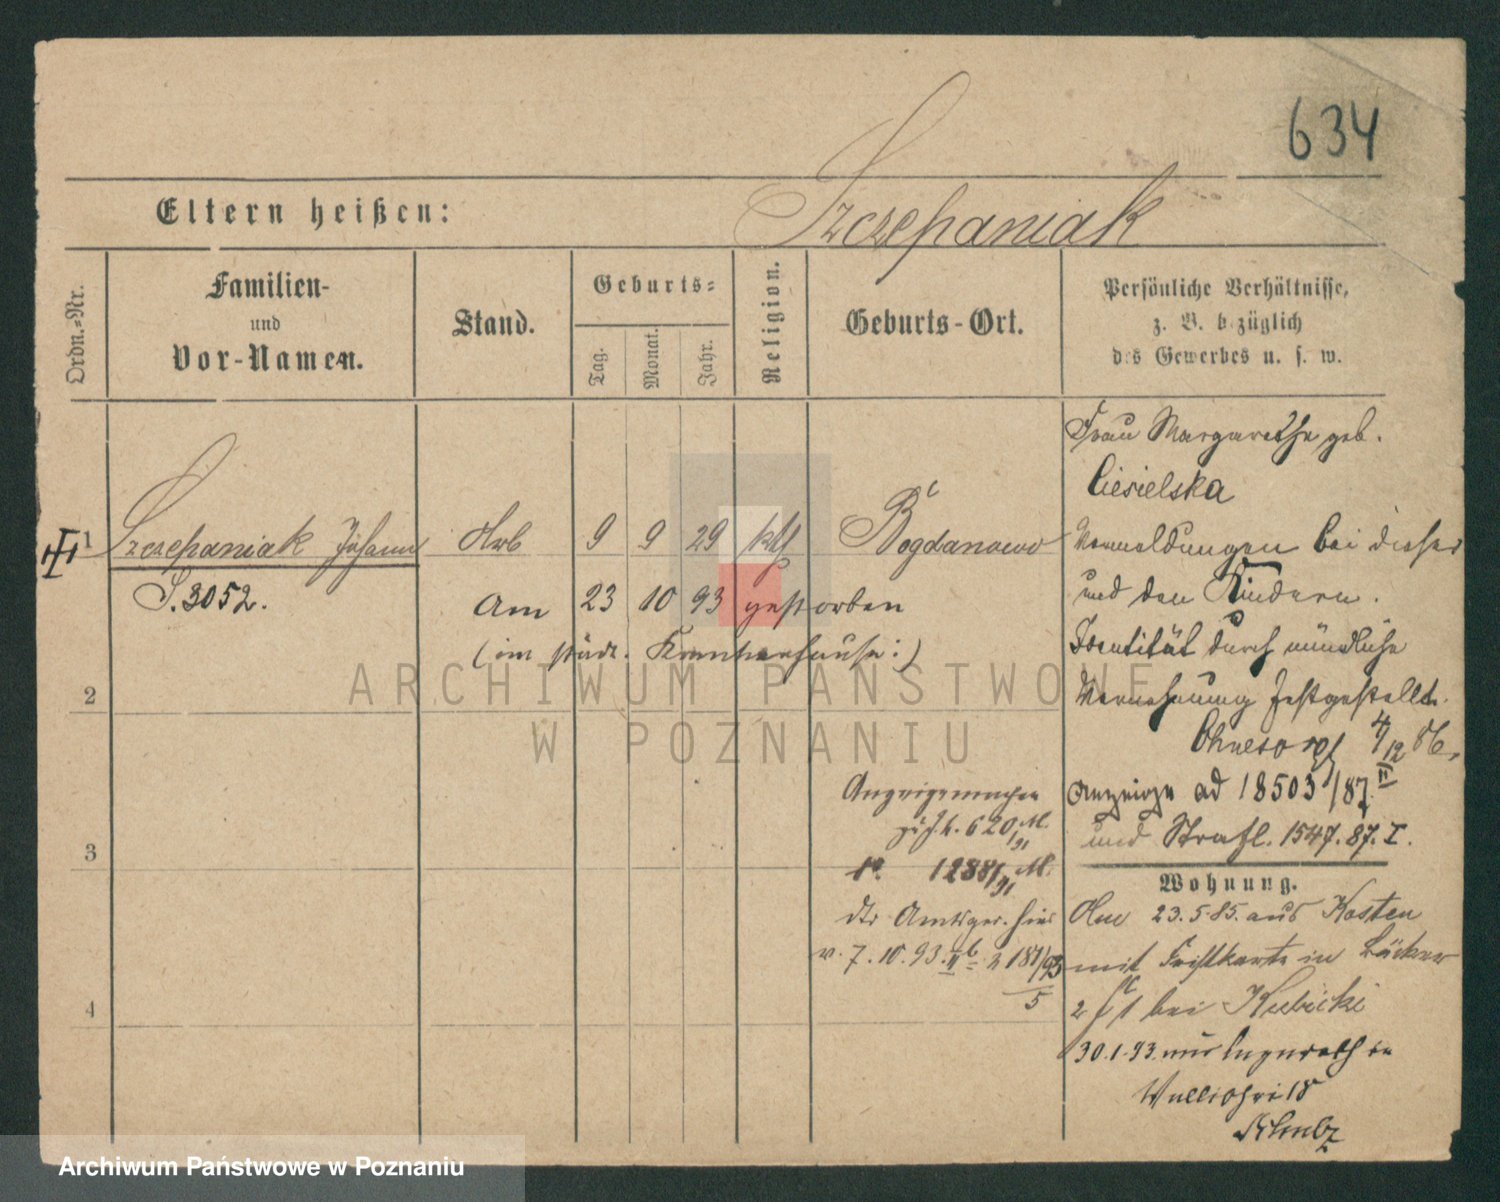 634
Eltern heißen: Szczepaniak
Ordn.=Nr.
Familien-
und
Vor-Namen.
Stand.
Geburts=
Tag.
Monat.
Jahr.
Religion.
Geburts-Ort.
Persönliche Verhältnisse,
z. B. bezüglich
des Gewerbes u. s. w.
1 Szczepaniak Johann Arb 9 9 29 kth Bogdanowo
S. 3052.
Am 23 10 93 gestorben
(im städt. Krankenhause:)
2
3
4
Frau Margarethe geb.
Ciesielska
Vermeldungen bei dieser
und den Kindern.
Identität durch mündliche
Vernehmung festgestellt.
Ohnesorge 4/12 86,
Anzeige ad 18503/87 II
und Strafl. 1547. 87. I.
Anzeigemachen
zu J. h. 620/91 M.
1288/91 M.
des Amtsger. hier
v. 7. 10. 93. II b 2 181/93
5
Wohnung.
23. 5 85. aus Kosten
mit in Bäcker
2 bei Kubicki
30. 1. 93. in
Wallischei 18
ARCHIWUM PAŃSTWOWE
W POZNANIU
Archiwum Państwowe w Poznaniu